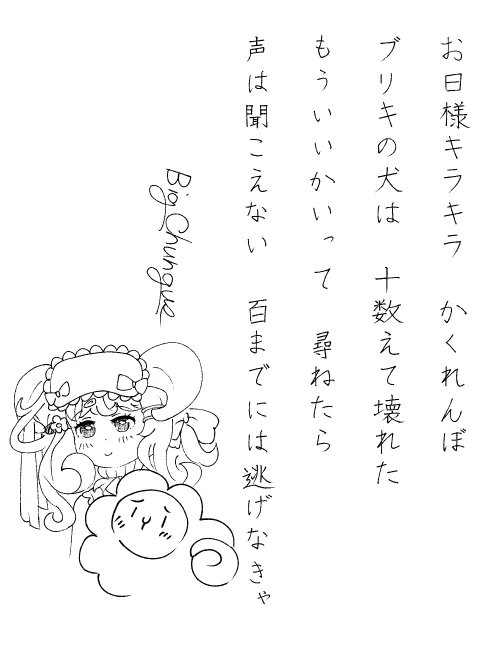 お日様キラキラ　かくれんぼ
ブリキの犬は　十数えて壊れた
もういいかいって　尋ねたら
声は聞こえない　百までには逃げなきゃ
Big Chungue